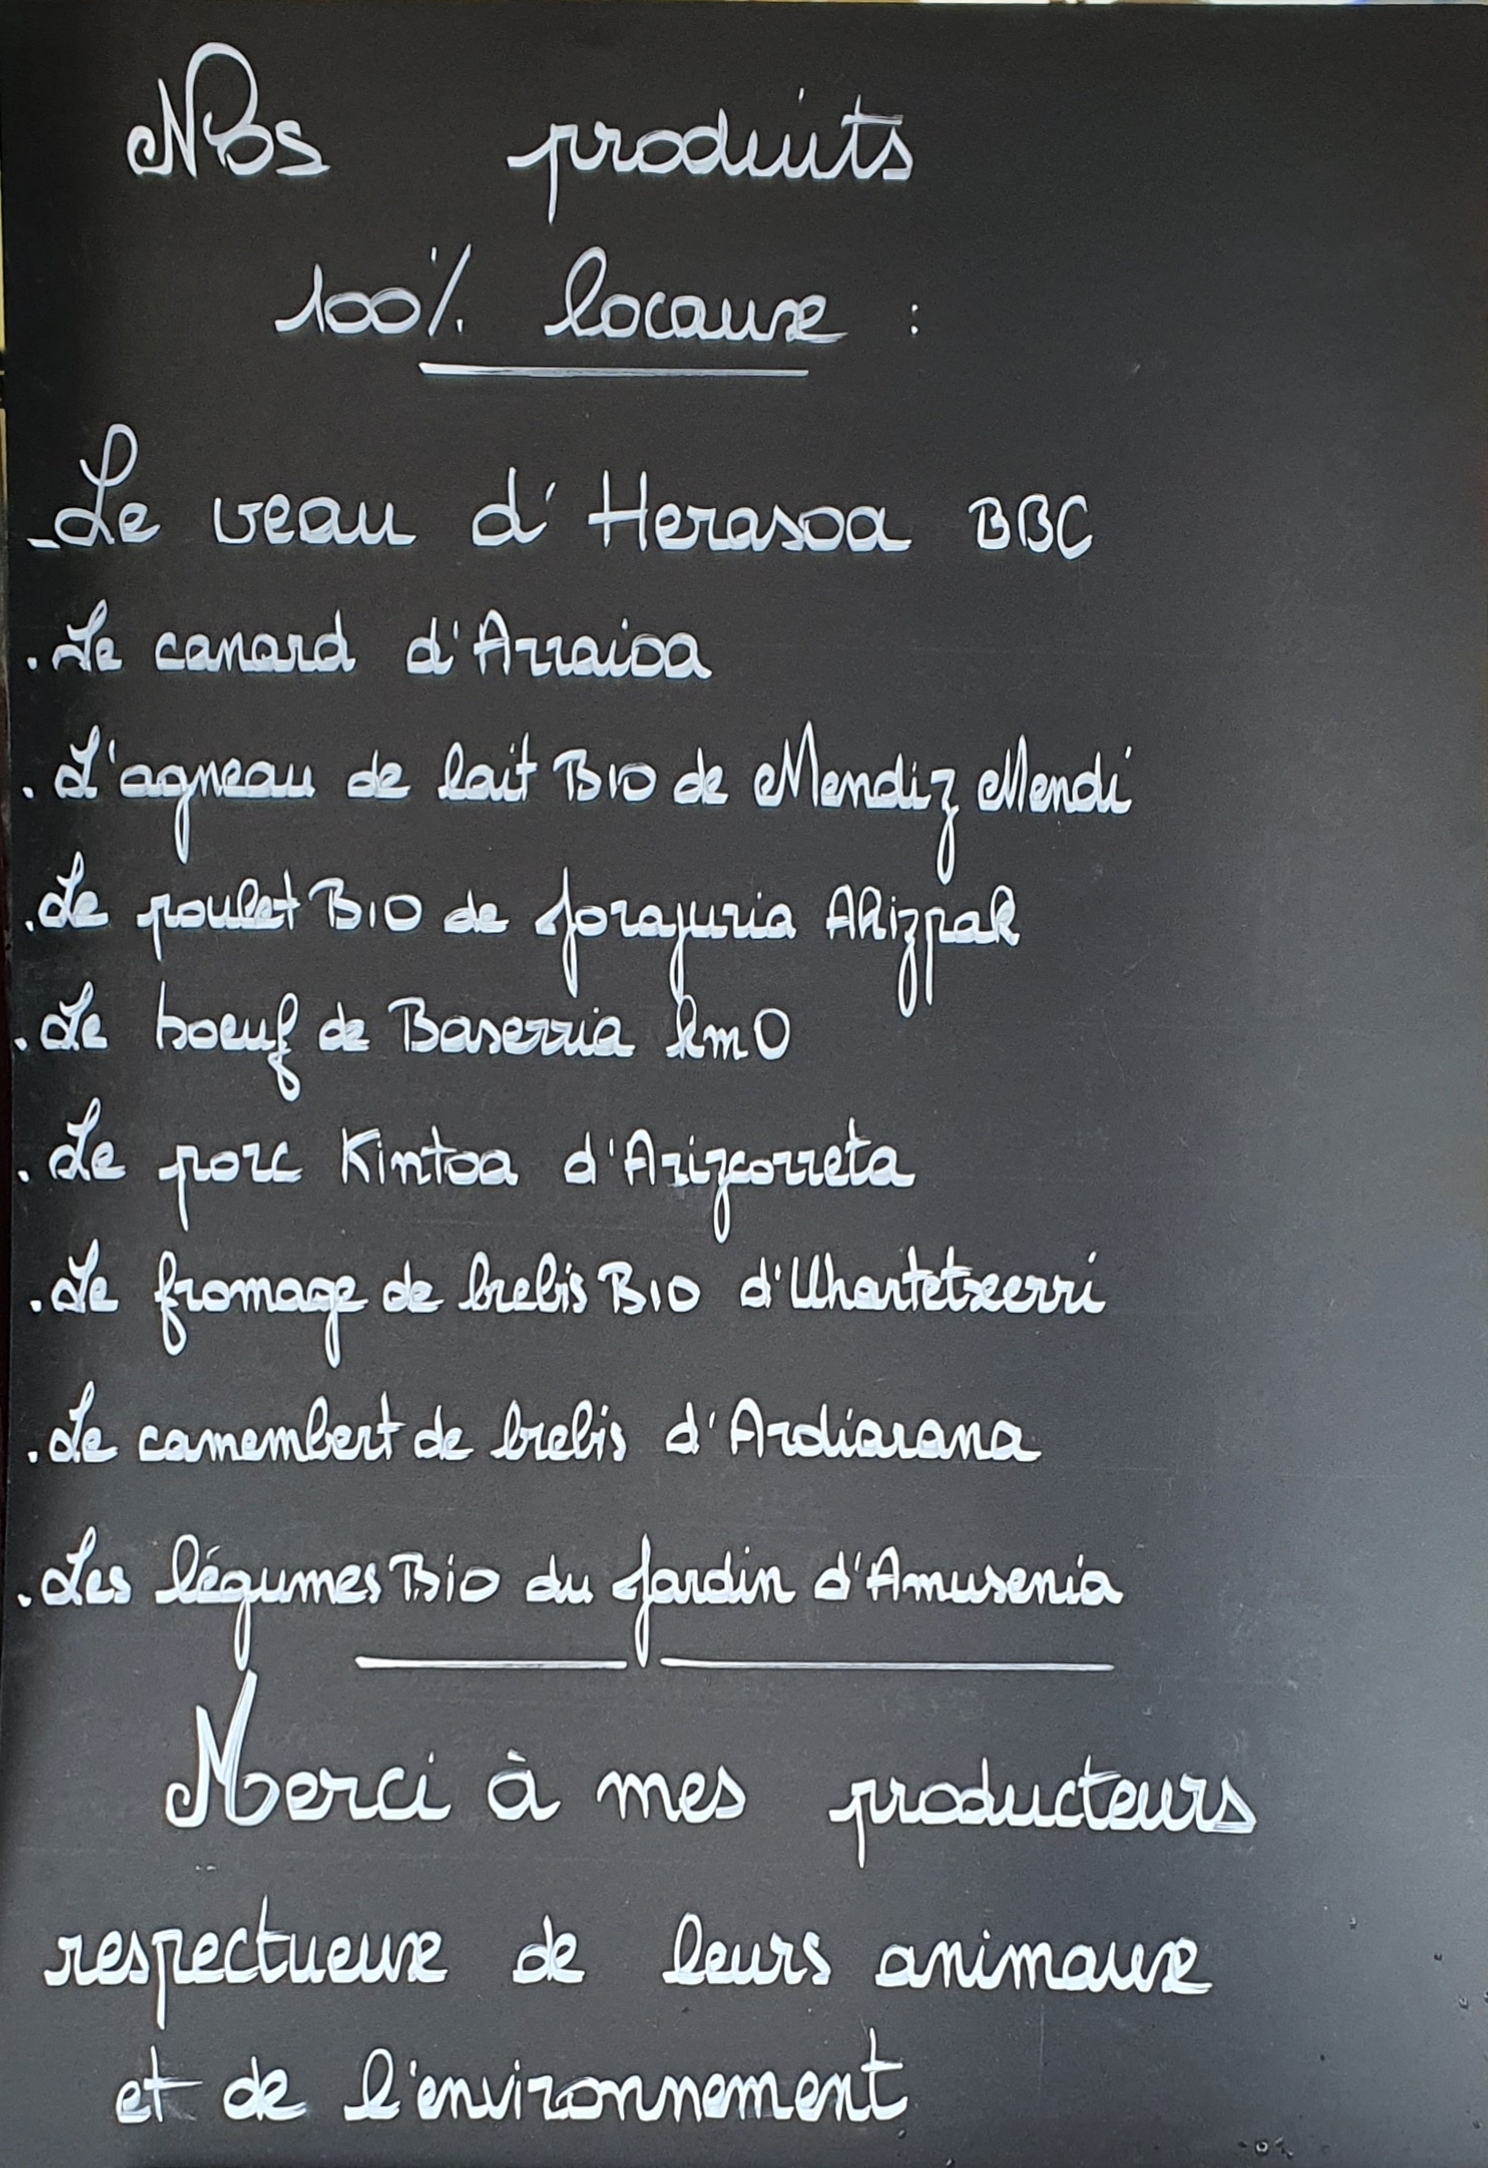 Nos produits
100% locaux :
- Le veau d'Herasoa BBC
. Le canard d'Arraioa
. L'agneau de lait BIO de Mendiz Mendi
. Le poulet BIO de Jorajuria Ahizpak
. Le boeuf de Baserria km0
. Le porc Kintoa d'Arizcorreta
. Le fromage de brebis BIO d'Uhartetxerri
. Le camembert de brebis d'Ardiarana
. Les légumes Bio du Jardin d'Amusenia
Merci à mes producteurs
respectueux de leurs animaux
et de l'environnement